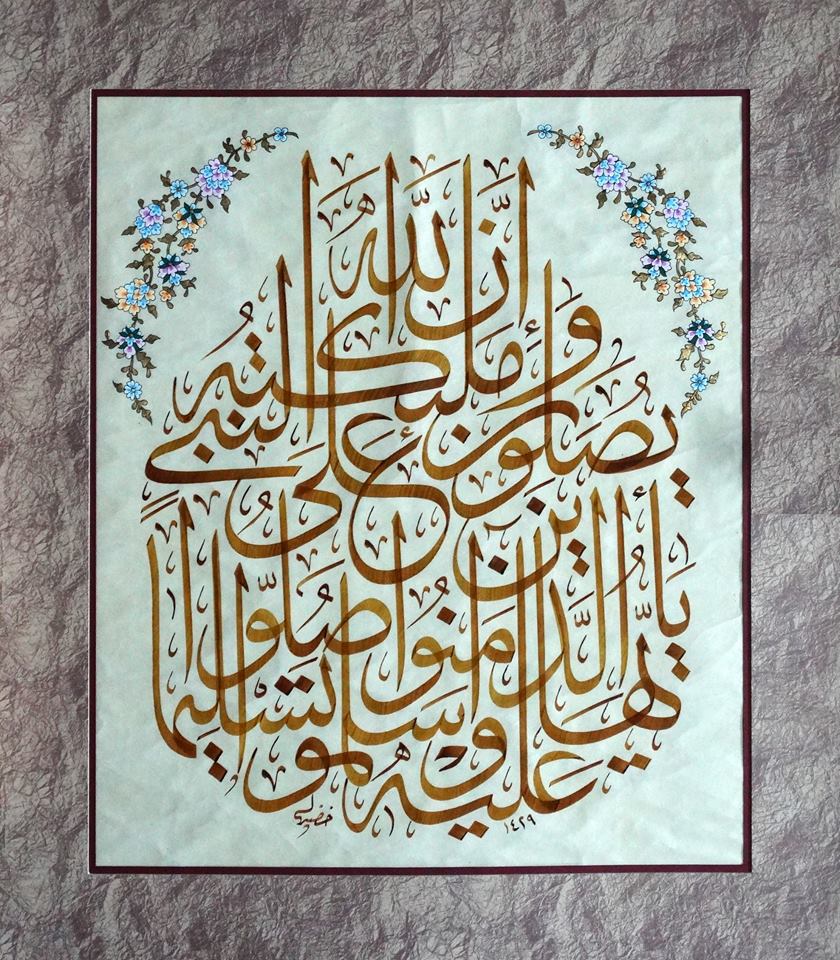 إنَّ اللَّهَ
وَمَلَئِكَتَهُ
يُصَلُّونَ عَلَى النَّبِيِّ
يَأَيُّهَا الَّذِينَ ءَامَنُوا صَلُّوا
عَلَيْهِ وَسَلِّمُوا تَسْلِيمًا
١٤٢٩